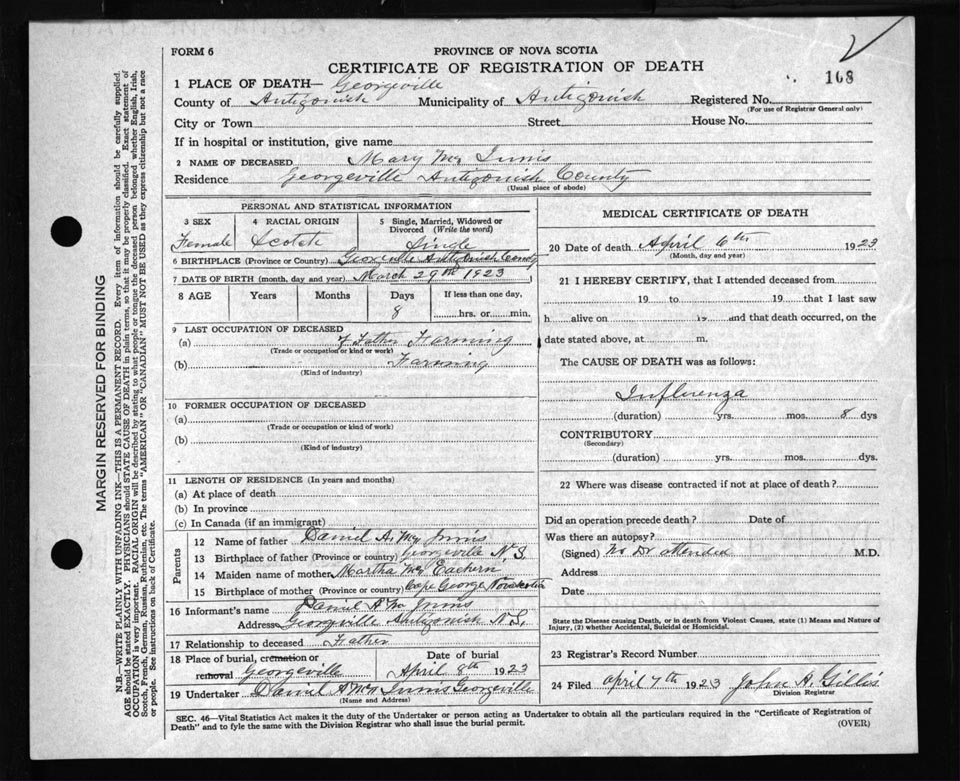 FORM 6
PROVINCE OF NOVA SCOTIA
CERTIFICATE OF REGISTRATION OF DEATH
108
1 PLACE OF DEATH— Georgeville
County of Antigonish Municipality of Antigonish Registered No.
(For use of Registrar General only)
City or Town Street House No.
If in hospital or institution, give name
2 NAME OF DECEASED Mary Mc Innis
Residence Georgeville Antigonish County
(Usual place of abode)
PERSONAL AND STATISTICAL INFORMATION
3 SEX 4 RACIAL ORIGIN 5 Single, Married, Widowed or Divorced (Write the word)
Female Scotch Single
6 BIRTHPLACE (Province or Country) Georgeville Antigonish County
7 DATE OF BIRTH (month, day and year) March 29th 1923
8 AGE Years Months Days If less than one day,
8 hrs. or min.
9 LAST OCCUPATION OF DECEASED
(a) Father Farming
(Trade or occupation or kind or work)
(b) Farming
(Kind of industry)
10 FORMER OCCUPATION OF DECEASED
(a)
(Trade or occupation or kind of work)
(b)
(Kind of industry)
11 LENGTH OF RESIDENCE (In years and months)
(a) At place of death
(b) In province
(c) In Canada (if an immigrant)
Parents
12 Name of father Daniel A. Mc Innis
13 Birthplace of father (Province or country) Georgeville N.S.
14 Maiden name of mother Martha Mc Eachern
15 Birthplace of mother (Province or country) Cape George Nova Scotia
16 Informant's name Daniel A Mc Innis
Address Georgville Antigonish N.S.
17 Relationship to deceased Father
18 Place of burial, cremation or removal Georgeville
Date of burial April 8th 1923
19 Undertaker Daniel A Mc Innis Georgeville
(Name and Address)
MEDICAL CERTIFICATE OF DEATH
20 Date of death April 6th 1923
(Month, day and year)
21 I HEREBY CERTIFY, that I attended deceased from
19 to 19 that I last saw
h alive on 19 and that death occurred, on the
date stated above, at m.
The CAUSE OF DEATH was as follows:
Influenza
(duration) yrs. mos. 8 dys
CONTRIBUTORY
(Secondary)
(duration) yrs. mos. dys.
22 Where was disease contracted if not at place of death?
Did an operation precede death? Date of
Was there an autopsy?
(Signed) No Dr attended M.D.
Address
Date
State the Disease causing Death, or in death from Violent Causes, state (1) Means and Nature of
Injury, (2) whether Accidental, Suicidal or Homicidal.
23 Registrar's Record Number
24 Filed April 7th 1923 John A. Gillis
Division Registrar
SEC. 46—Vital Statistics Act makes it the duty of the Undertaker or person acting as Undertaker to obtain all the particulars required in the "Certificate of Registration of
Death" and to fyle the same with the Division Registrar who shall issue the burial permit.
(OVER)
MARGIN RESERVED FOR BINDING
N.B.—WRITE PLAINLY WITH UNFADING INK—THIS IS A PERMANENT RECORD. Every item of information should be carefully supplied.
AGE should be stated EXACTLY. PHYSICIANS should STATE CAUSE OF DEATH in plain terms, so that it may be properly classified. Exact statement of
OCCUPATION is very important. RACIAL ORIGIN will be described by stating to what people or tongue the deceased person belonged whether English, Irish,
Scotch, French, German, Russian, Ruthenian, etc. The terms "AMERICAN" OR "CANADIAN" MUST NOT BE USED as they express citizenship but not a race
or people. See instructions on back of Certificate.